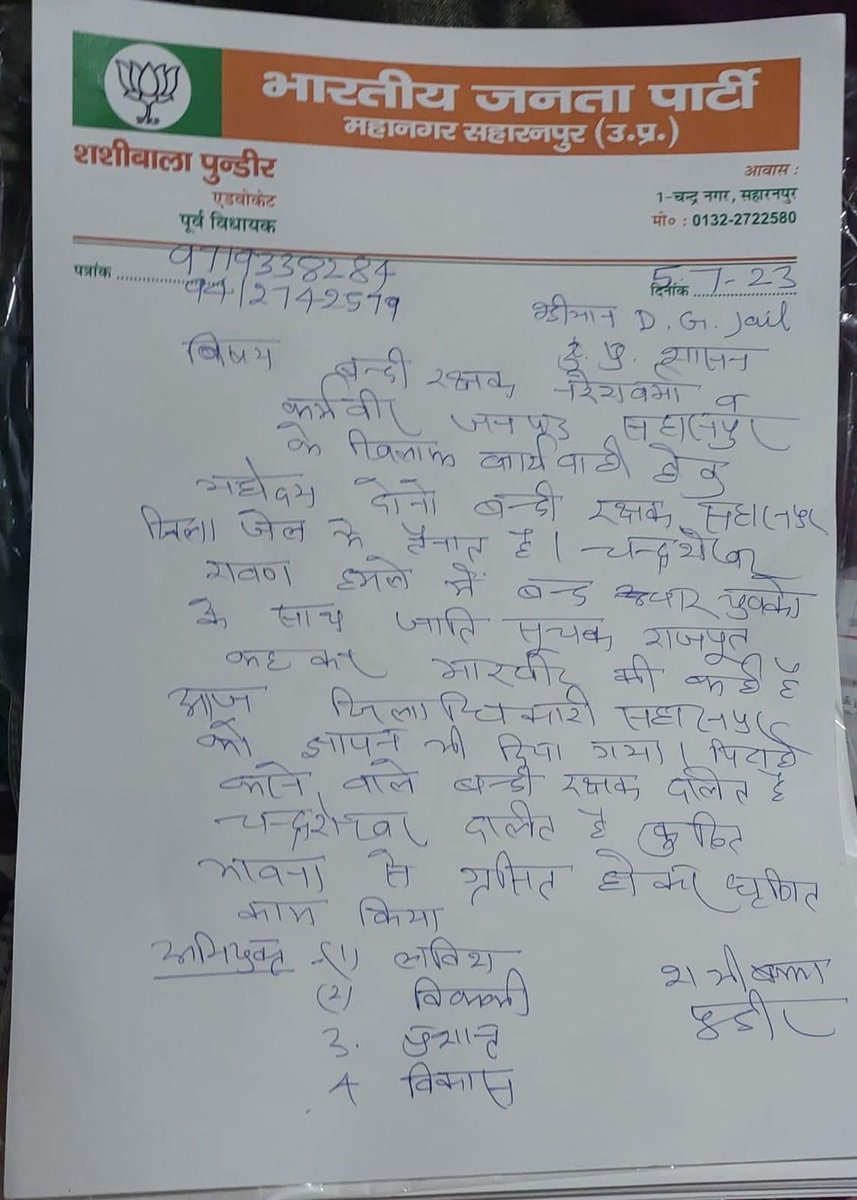 भारतीय जनता पार्टी
महानगर सहारनपुर (उ.प्र.)
शशीवाला पुन्डीर
एडवोकेट
पूर्व विधायक
आवास :
1-चन्द्र नगर, सहारनपुर
मो० : 0132-2722580
पत्रांक 9719338284
9412742579
दिनांक 5-7-23
श्रीमान D. G. Jail
यू. पी. शासन
विषय बन्दी रक्षक व
कर्मवीर जनपद सहारनपुर
के खिलाफ कार्यवाही हेतु
महोदय दोनो बन्दी रक्षक सहारनपुर
जिला जेल मे तैनात है। चन्द्रशेखर
रावण हमले में बन्द चार युवको
के साथ जाति सूचक राजपूत
कह कर मारपीट की है
आज जिलाधिकारी सहारनपुर
को ज्ञापन भी दिया गया। पिटाई
करने वाले बन्दी रक्षक दलित है
चन्द्रशेखर दलित है कुंठित
भावना से ग्रसित होकर घृणित
काम किया
अभियुक्त (1) लविश
(2) विक्की
3. प्रशान्त
4 विकास
शशीबाला
पुन्डीर